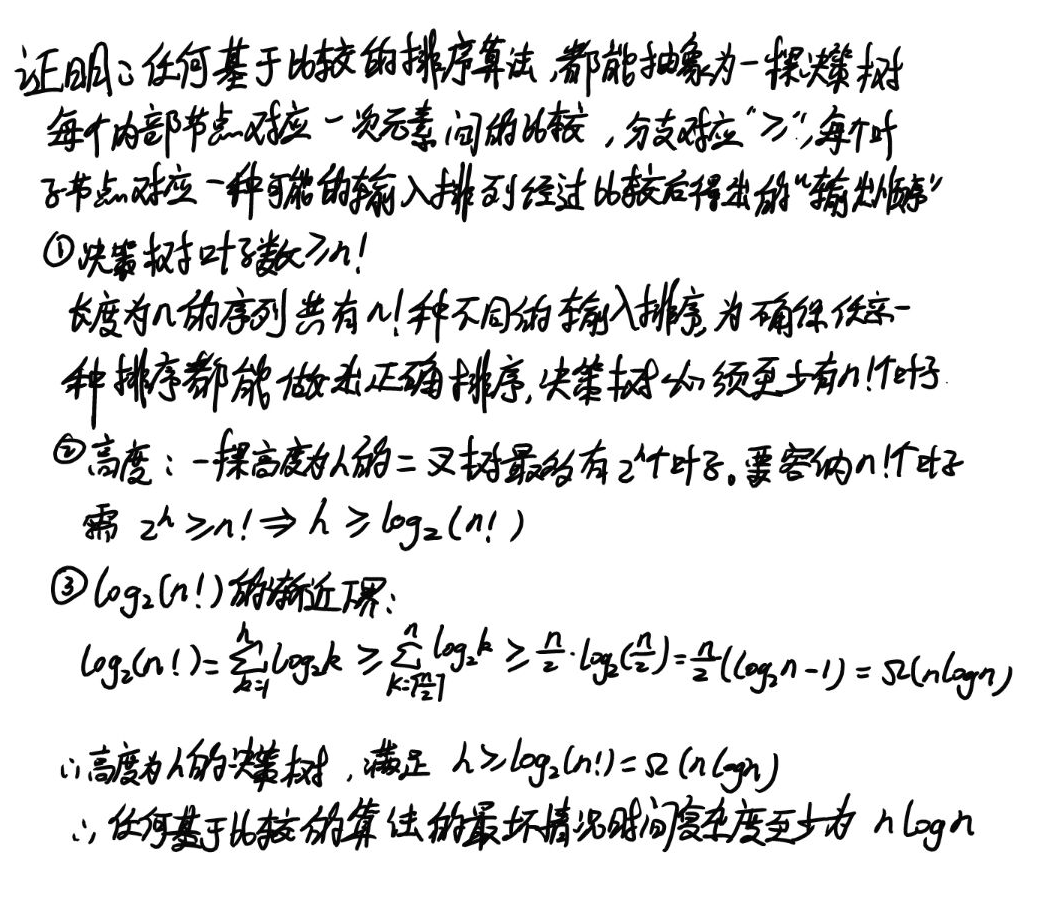 证明:任何基于比较的排序算法,都能抽象为一棵决策树
每个内部节点对应一次元素间的比较,分支对应“≥”,每个叶
子节点对应一种可能的输入排列经过比较后得出的“输出顺序”
①决策树叶子数≥n!
长度为n的序列共有n!种不同的输入排序,为确保任意一
种排序都能做出正确排序,决策树必须至少有n!个叶子.
②高度:一棵高度为h的二叉树最多有2^h个叶子。要容纳n!个叶子
需 2^h ≥n! ⇒ h ≥ log₂(n!)
③log₂(n!)的渐近下界:
log₂(n!)=∑_{k=1}^{n} log₂k ≥ ∑_{k=⌈n/2⌉}^{n} log₂k ≥ n/2·log₂(n/2)=n/2(log₂n-1)=Ω(nlogn)
∴高度为h的决策树,满足 h≥log₂(n!)=Ω(nlogn)
∴任何基于比较的算法的最坏情况时间复杂度至少为 nlogn